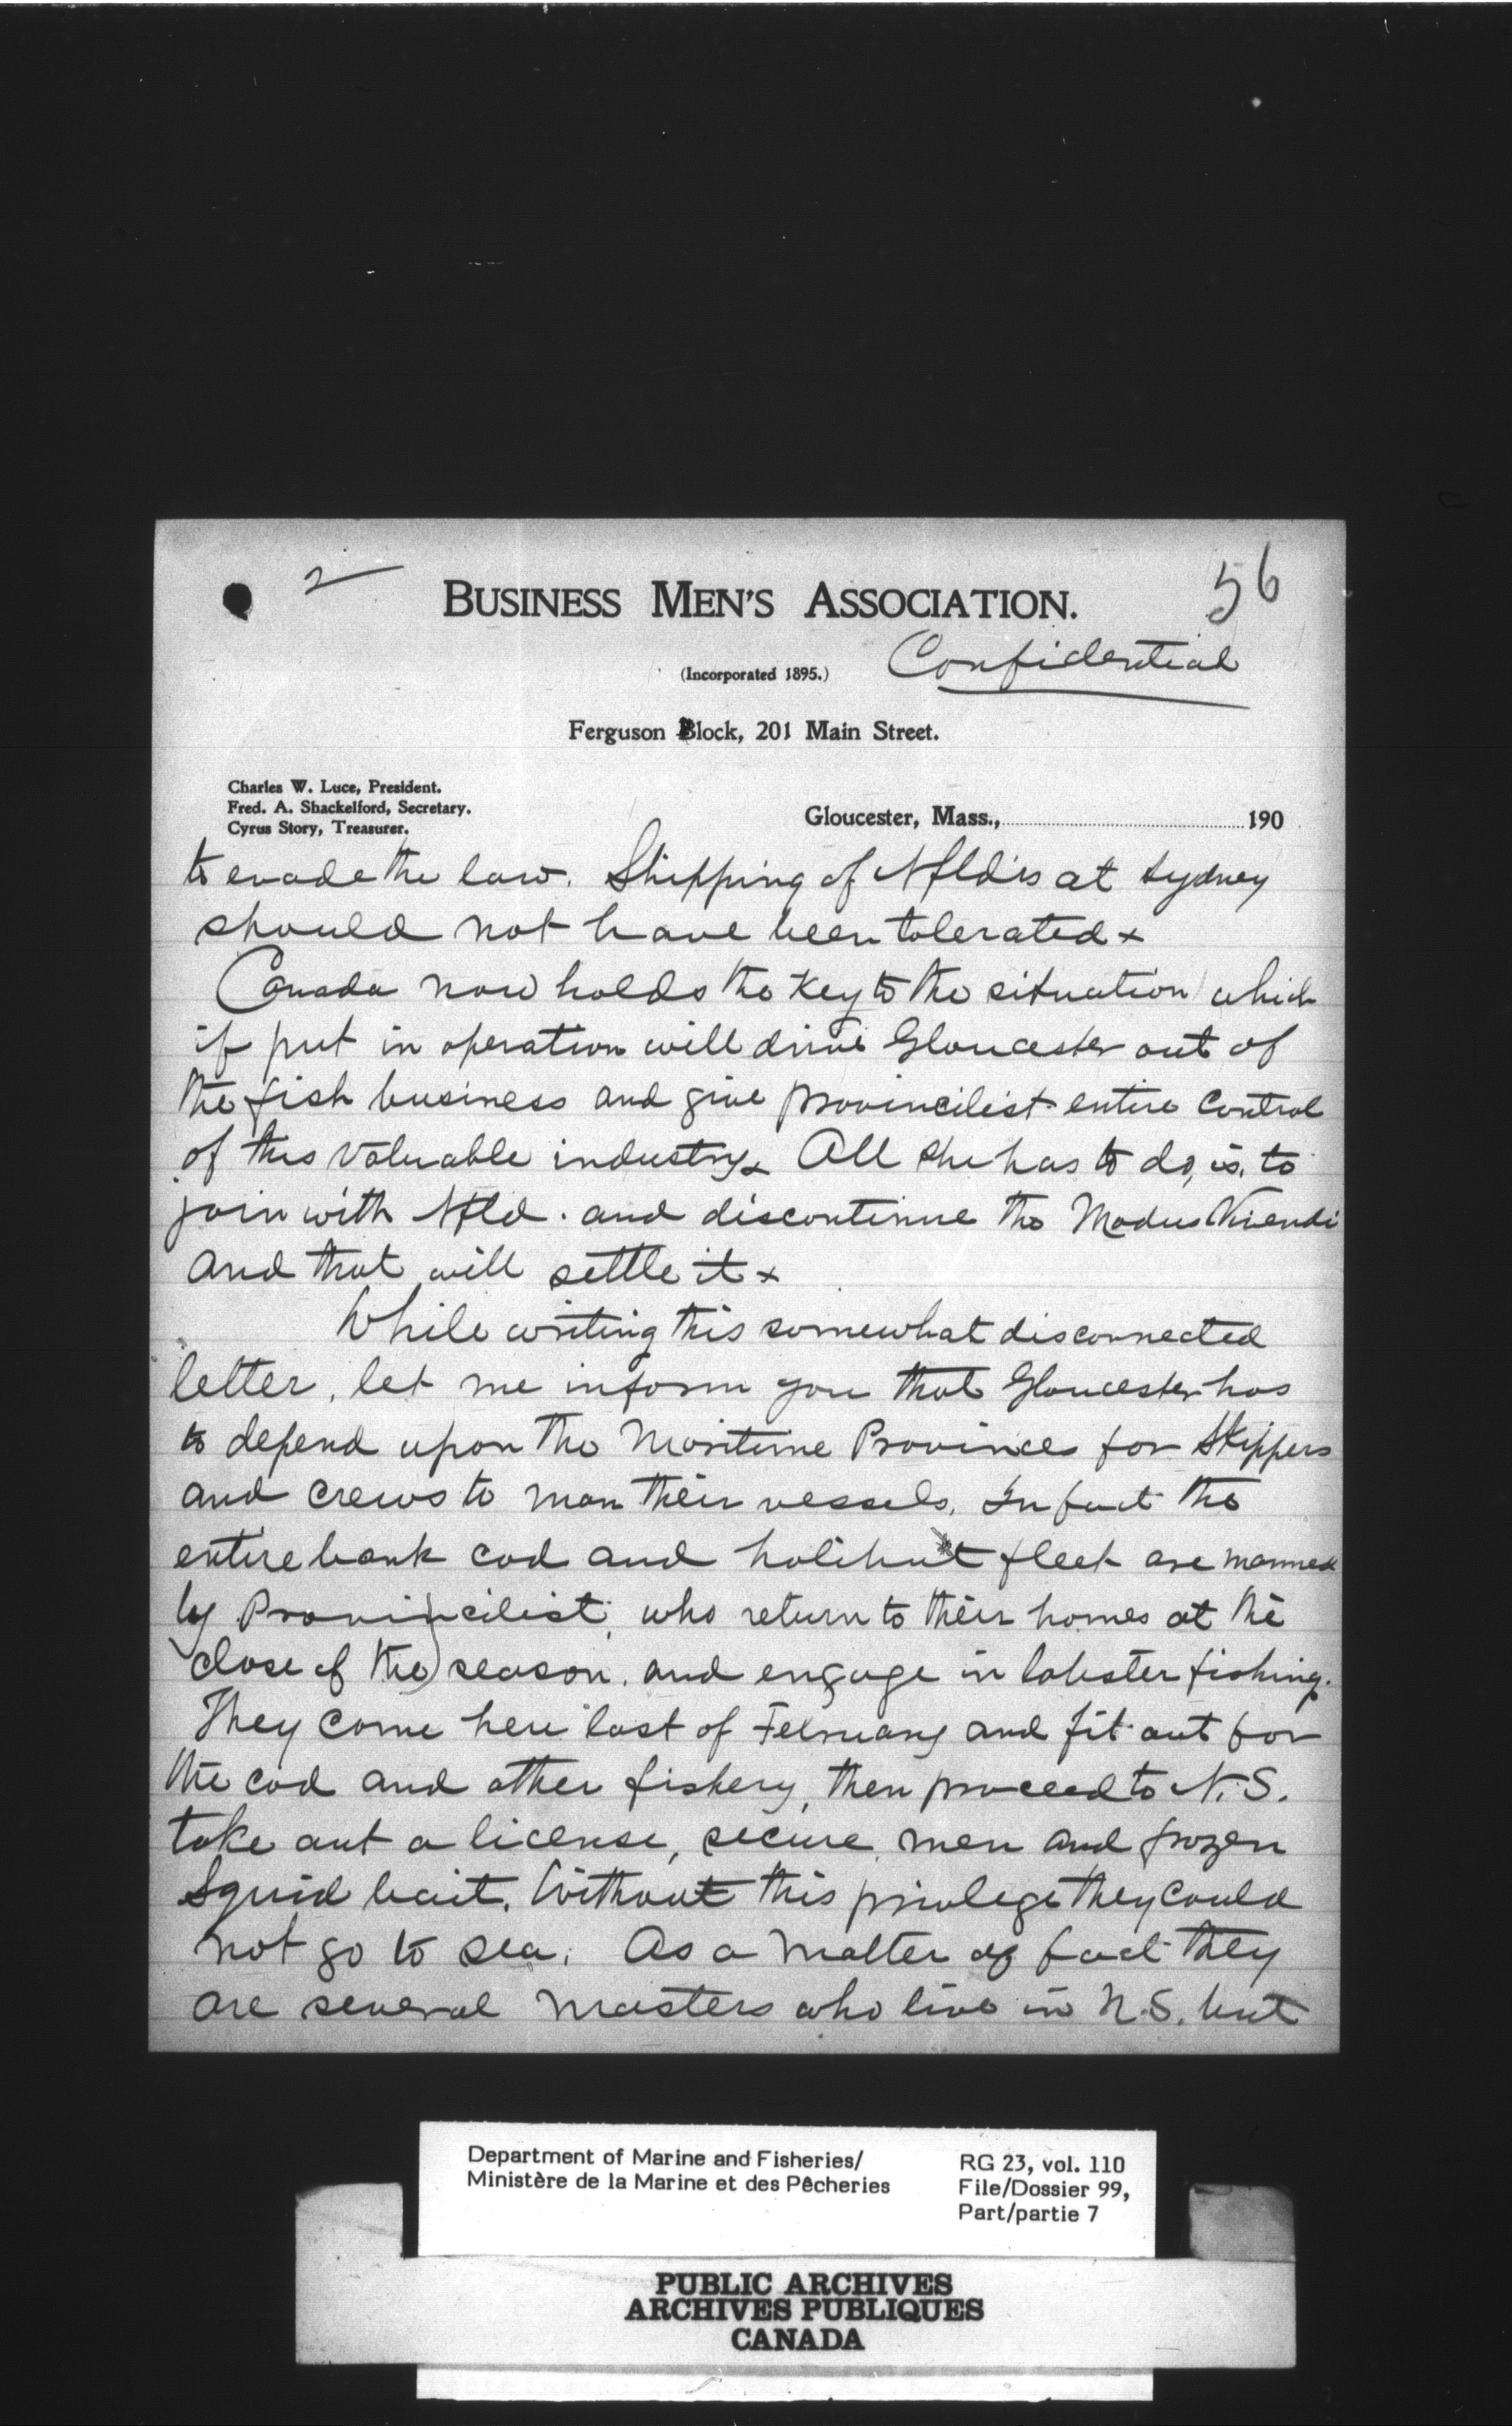 2
56
BUSINESS MEN'S ASSOCIATION.
Confidential
(Incorporated 1895.)
Ferguson Block, 201 Main Street.
Charles W. Luce, President.
Fred. A. Shackelford, Secretary.
Cyrus Story, Treasurer.
Gloucester, Mass.,..........190
to evade the law. Shipping of Nfld'rs at Sydney
should not have been tolerated x
Canada now holds the key to the situation which
if put in operation will drive Gloucester out of
the fish business and give provincilist entire control
of this valuable industry x All she has to do, is, to
join with Nfld. and discontinue the Modus Vivendi
and that will settle it x
While writing this somewhat disconnected
letter, let me inform you that Gloucester has
to depend upon the Moritime Provinces for Skippers
and crews to man their vessels. In fact the
entire bank cod and halibut fleet are manned
by Provincilist, who return to their homes at the
close of the season, and engage in lobster fishing.
They come here last of February and fit out for
the cod and other fishery, then proceed to N.S.
take out a license, secure men and frozen
Squid bait. Without this privilege they could
not go to sea. As a matter of fact they
are several masters who live in N.S. but
Department of Marine and Fisheries/
Ministère de la Marine et des Pêcheries
RG 23, vol. 110
File/Dossier 99,
Part/partie 7
PUBLIC ARCHIVES
ARCHIVES PUBLIQUES
CANADA